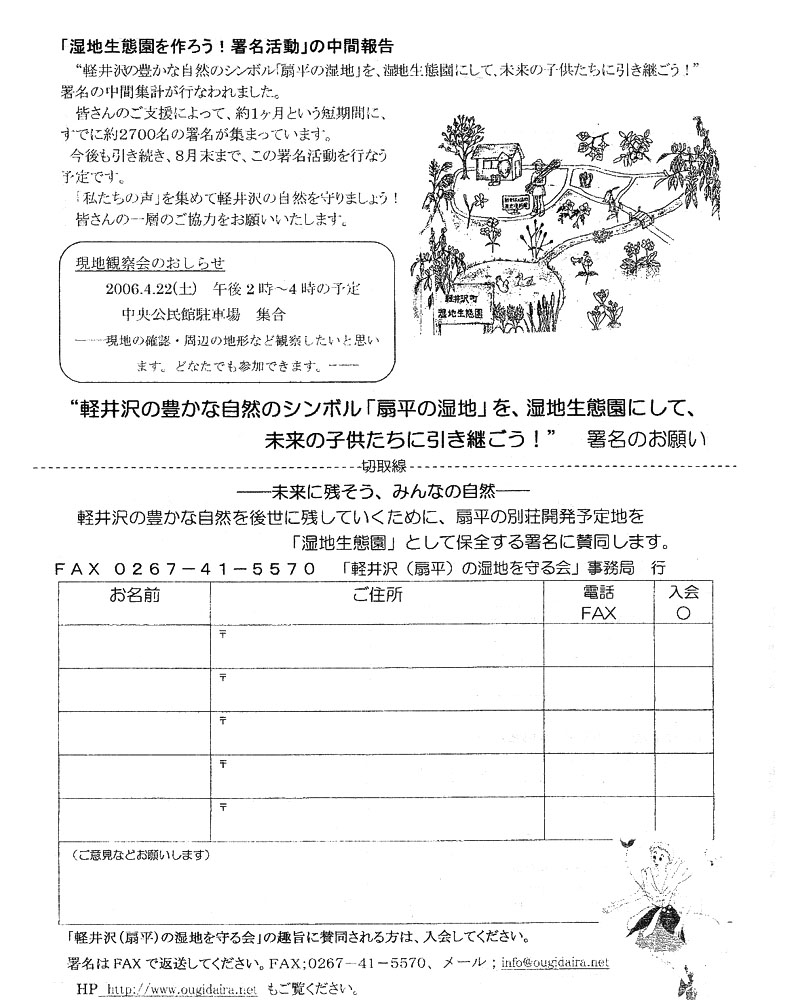 「湿地生態園を作ろう！署名活動」の中間報告
“軽井沢の豊かな自然のシンボル「扇平の湿地」を、湿地生態園にして、未来の子供たちに引き継ごう！”
署名の中間集計が行なわれました。
皆さんのご支援によって、約1ヶ月という短期間に、
すでに約2700名の署名が集まっています。
今後も引き続き、8月末まで、この署名活動を行なう
予定です。
「私たちの声」を集めて軽井沢の自然を守りましょう！
皆さんの一層のご協力をお願いいたします。
軽井沢町
湿地生態園
現地観察会のおしらせ
2006.4.22(土)　午後２時～４時の予定
中央公民館駐車場　集合
――現地の確認・周辺の地形など観察したいと思い
ます。どなたでも参加できます。――
“軽井沢の豊かな自然のシンボル「扇平の湿地」を、湿地生態園にして、
未来の子供たちに引き継ごう！”　署名のお願い
切取線
――未来に残そう、みんなの自然――
軽井沢の豊かな自然を後世に残していくために、扇平の別荘開発予定地を
「湿地生態園」として保全する署名に賛同します。
ＦＡＸ ０２６７－４１－５５７０　「軽井沢（扇平）の湿地を守る会」事務局　行
お名前　ご住所　電話　入会
FAX　○
〒
〒
〒
〒
〒
（ご意見などお願いします）
「軽井沢（扇平）の湿地を守る会」の趣旨に賛同される方は、入会してください。
署名は FAX で返送してください。FAX;0267－41－5570、メール；info@ougidaira.net
HP http://www.ougidaira.net もご覧ください。